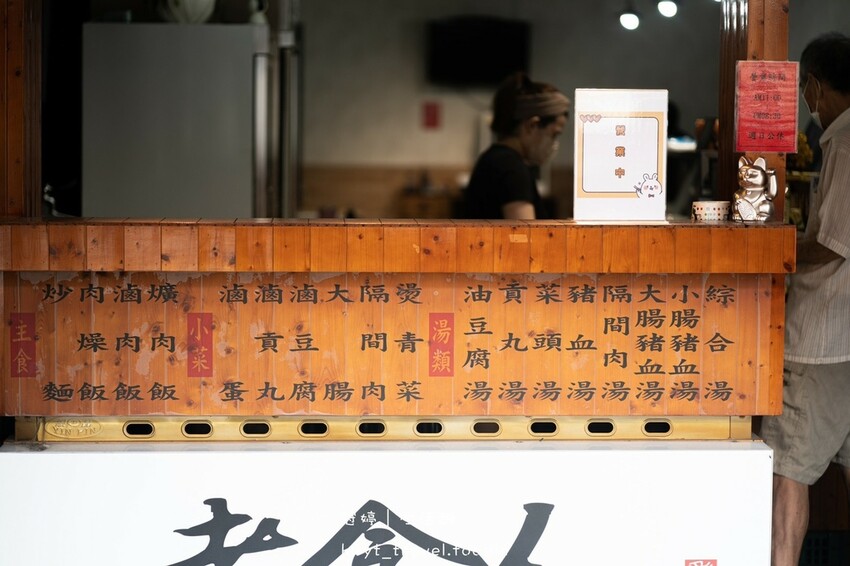 營業中
主食
炒麵
肉燥飯
滷肉飯
爌肉飯
小菜
滷蛋
滷貢丸
滷豆腐
大腸
隔間肉
燙青菜
湯類
油豆腐湯
貢丸湯
菜頭湯
豬血湯
隔間肉湯
大腸豬血湯
小腸豬血湯
綜合湯